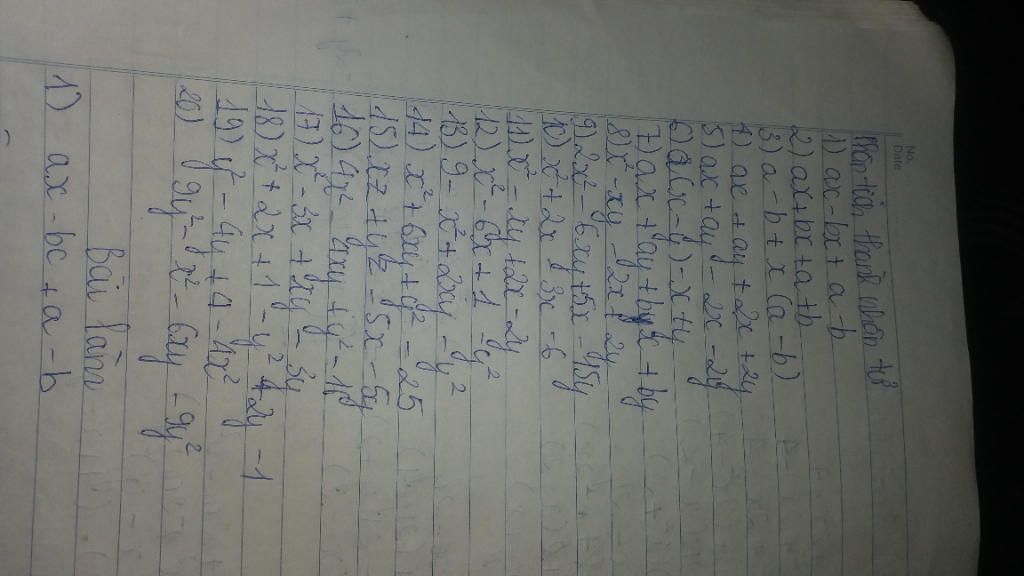 No.
Date
Phân tích thành nhân tử
1) ax - bx + a - b
2) ax + bx + a + b
3) a - b + x (a - b)
4) ax + ay + 2x + 2y
5) ax + ay - 2x - 2y
6) a(x - y) - x + y
7) ax + ay + bx + by
8) x² - xy - 2x + 2y
9) 2x² - 6xy + 5x - 15y
10) x² + 2x - 3x - 6
11) x² - xy + 2x - 2y
12) x² - 6x + 1 - y²
13) 9 - x² + 2xy - y²
14) x² + 6xy + y² - 25
15) xz + yz - 5x - 5y
16) 4x² - 4xy + y² - 1
17) x² - 3x + xy - 3y
18) x² + 2x + 1 - y² + 2y - 1
19) y² - 4y + 4 - 4x²
20) 9y² - x² - 6xy - 9y²
Bài làm
1) ax - bc + a - b